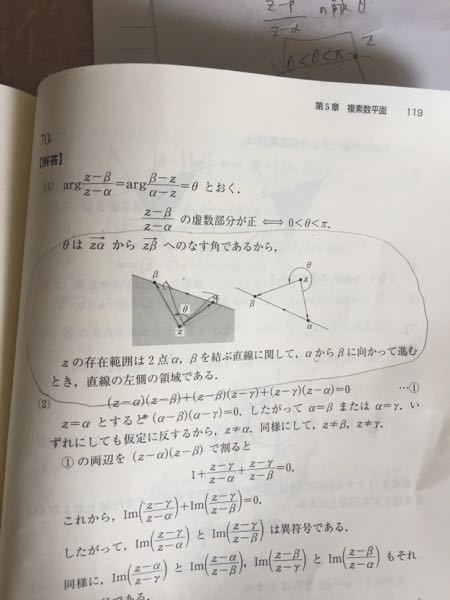 z−β
z−α
の偏角 θ
0<θ<π
z
第5章 複素数平面 119
70.
【解答】
(1) arg (z−β)/(z−α) = arg (β−z)/(α−z) = θ とおく.
(z−β)/(z−α) の虚数部分が正 ⟺ 0<θ<π.
θは zα→ から zβ→ へのなす角であるから,
β θ α z
θ z β α
z の存在範囲は2点 α, β を結ぶ直線に関して, α から β に向かって進む
とき, 直線の左側の領域である.
(2) (z−α)(z−β)+(z−β)(z−γ)+(z−γ)(z−α)=0 …①
z=α とすると (α−β)(α−γ)=0. したがって α=β または α=γ. い
ずれにしても仮定に反するから, z≠α, 同様にして, z≠β, z≠γ.
①の両辺を (z−α)(z−β) で割ると
1+(z−γ)/(z−α)+(z−γ)/(z−β)=0.
これから, Im((z−γ)/(z−α))+Im((z−γ)/(z−β))=0.
したがって, Im((z−γ)/(z−α)) と Im((z−γ)/(z−β)) は異符号である.
同様に, Im((z−α)/(z−γ)) と Im((z−α)/(z−β)), Im((z−β)/(z−γ)) と Im((z−β)/(z−α)) もそれ
である.